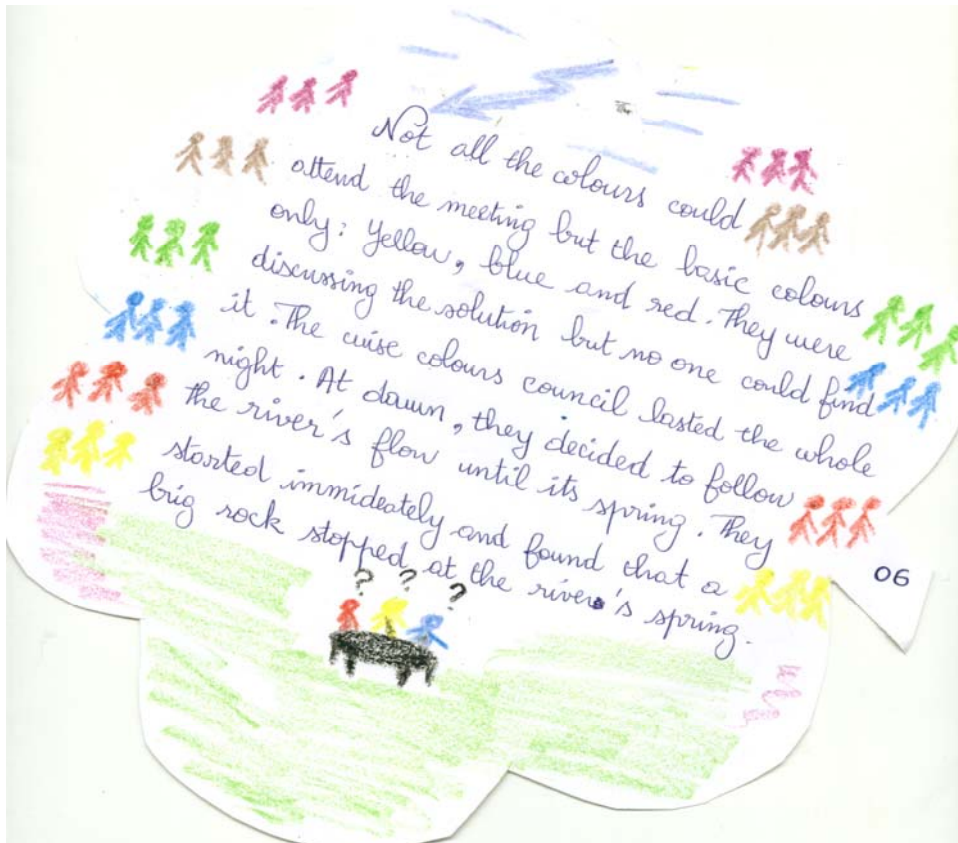 Not all the colours could
attend the meeting but the basic colours
only : Yellow, blue and red. They were
discussing the solution but no one could find
it. The wise colours council lasted the whole
night. At dawn, they decided to follow
the river's flow until its spring. They
started immideately and found that a
brig rock stopped at the river's spring.
? ? ?
06